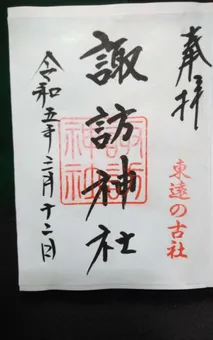 奉拝
東遠の古社
諏訪神社
諏訪神社
令和五年三月十二日